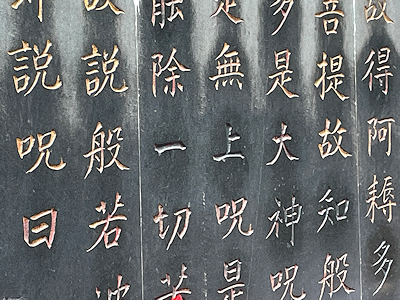 故得阿耨多
菩提故知般
多是大神呪
是無上呪是
能除一切苦
故説般若波
即説呪曰